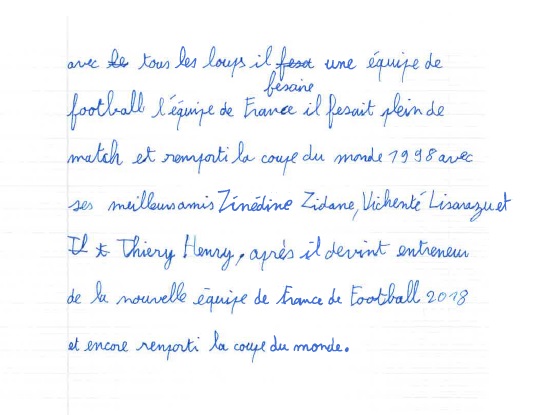 avec le tous les loups il fesat une équipe de
besaine
football l'équipe de France il fesait plein de
match et remporti la coupe du monde 1998 avec
ses meilleurs amis Zinédine Zidane, Vichenté Lisarazu et
Il t Thiery Henry, aprés il devint entreneur
de la nouvelle équipe de France de Football 2018
et encore remporti la coupe du monde.